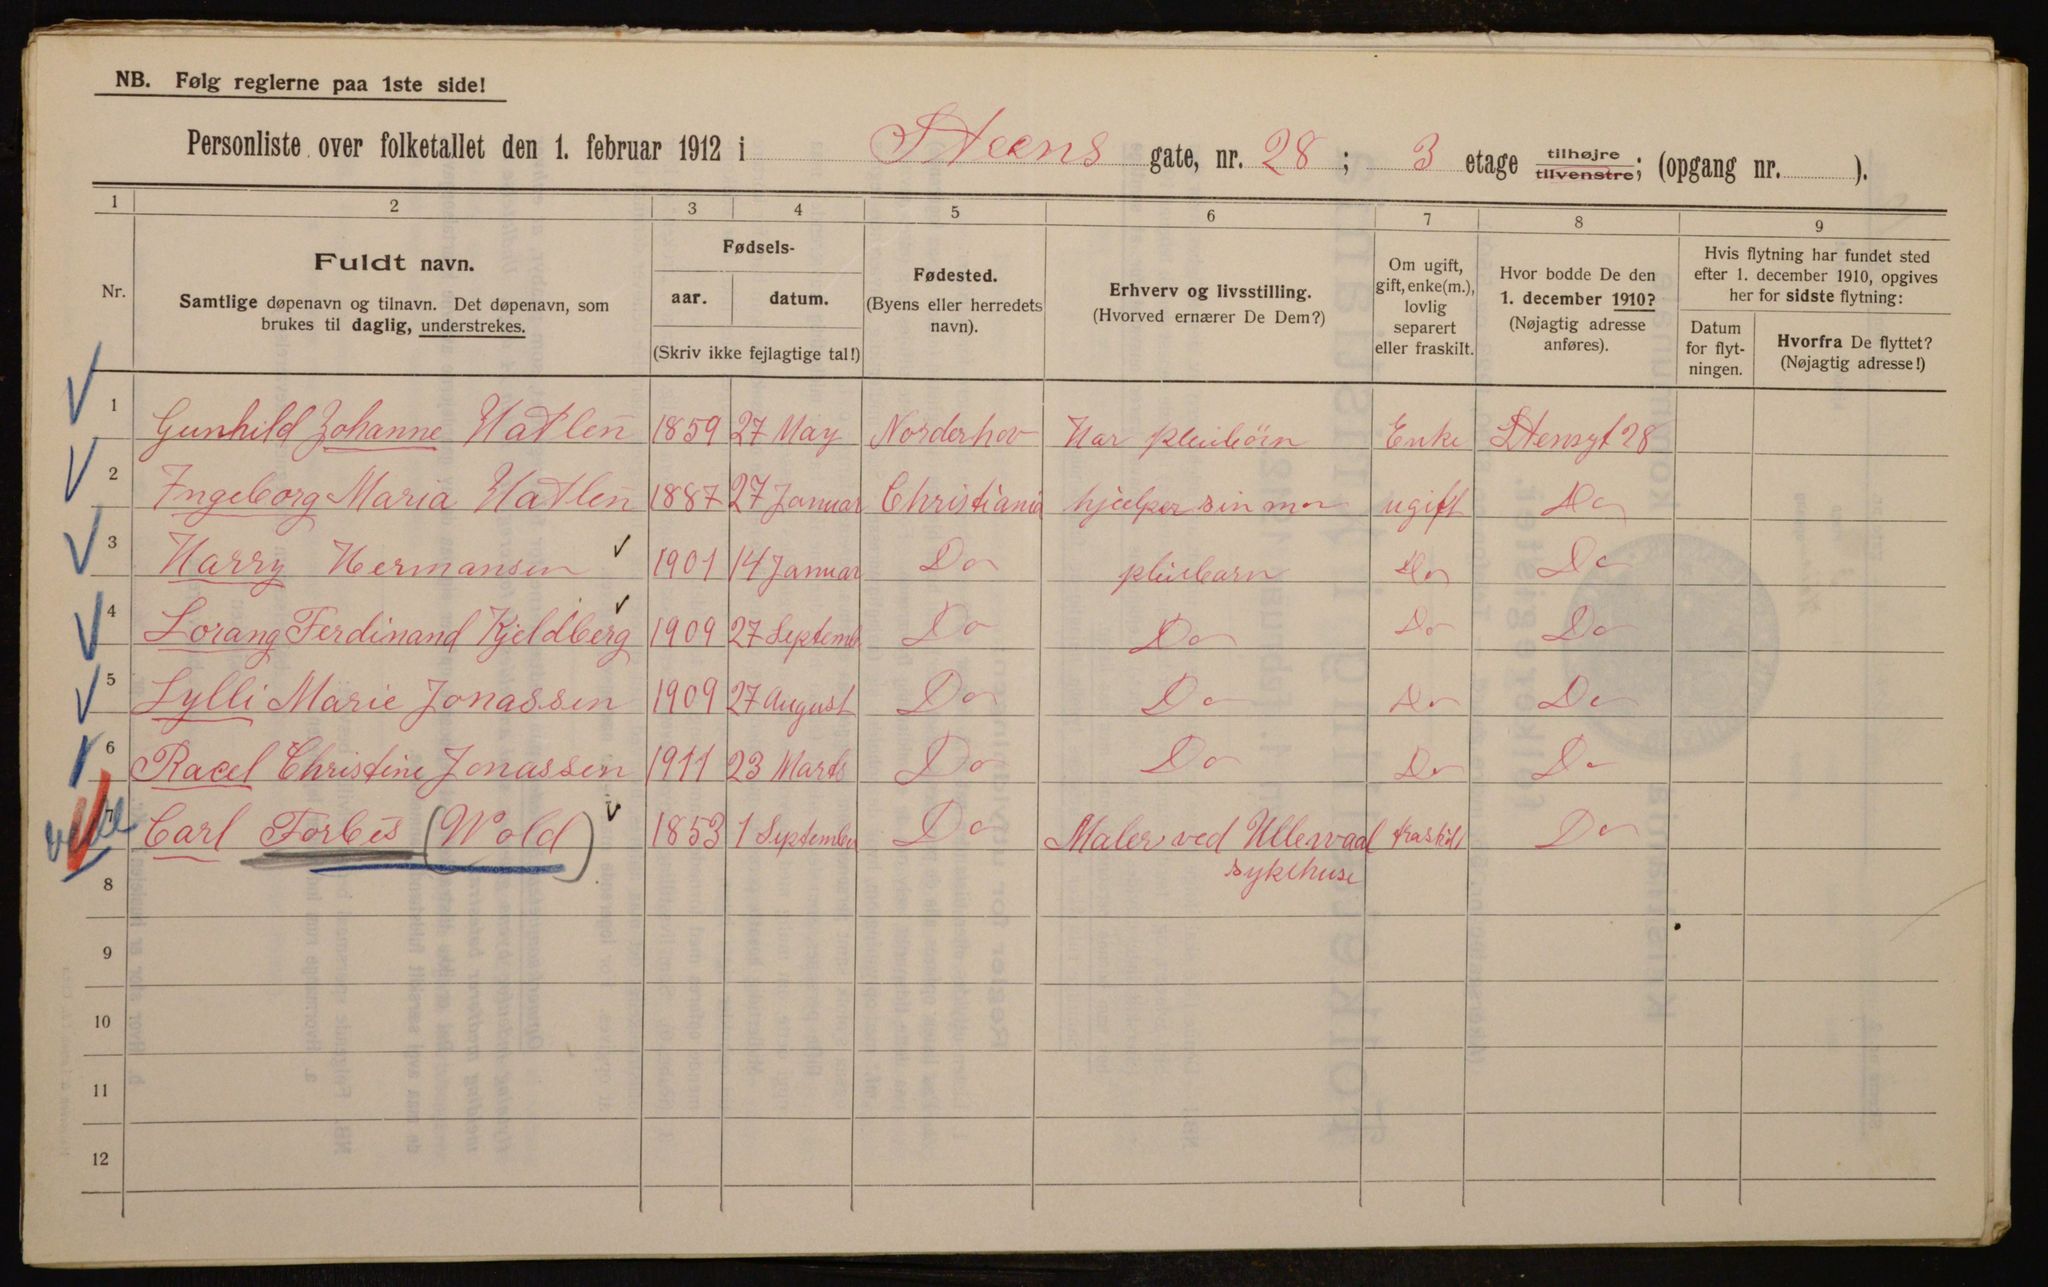 NB. Følg reglerne paa 1ste side!
Personliste over folketallet den 1. februar 1912 i Steens gate, nr. 28; 3 etage tilhøjre tilvenstre; (opgang nr. ).
1 2 3 4 5 6 7 8 9
Nr.
Fuldt navn.
Samtlige døpenavn og tilnavn. Det døpenavn, som
brukes til daglig, understrekes.
Fødsels-
aar. datum.
(Skriv ikke fejlagtige tal!)
Fødested.
(Byens eller herredets
navn).
Erhverv og livsstilling.
(Hvorved ernærer De Dem?)
Om ugift,
gift, enke(m.),
lovlig
separert
eller fraskilt.
Hvor bodde De den
1. december 1910?
(Nøjagtig adresse
anføres).
Hvis flytning har fundet sted
efter 1. december 1910, opgives
her for sidste flytning:
Datum
for flyt-
ningen.
Hvorfra De flyttet?
(Nøjagtig adresse!)
1 Gunhild Johanne Hatlen 1859 27 May Norderhov Har pleiebørn Enke Stensgt 28
2 Ingeborg Maria Hatlen 1887 27 Januar Christiania hjelper sin mor ugift Do
3 Harry Hermansen 1901 14 Januar Do pleiebarn Do Do
4 Lorang Ferdinand Kjeldberg 1909 27 Septemb Do Do Do Do
5 Lylli Marie Jonassen 1909 27 August Do Do Do Do
6 Racel Christine Jonassen 1911 23 Marts Do Do Do Do
7 Carl Forbes (Wold) 1853 1 September Do Maler ved Ullevaal fraskilt Do
sykehuse
8
9
10
11
12